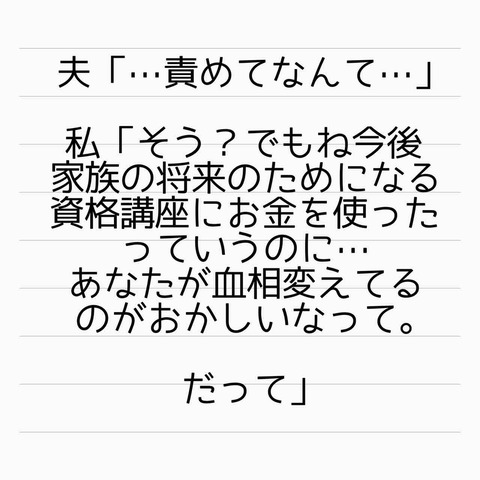 夫「…責めてなんて…」
私「そう？でもね今後
家族の将来のためになる
資格講座にお金を使った
っていうのに…
あなたが血相変えてる
のがおかしいなって。
だって」